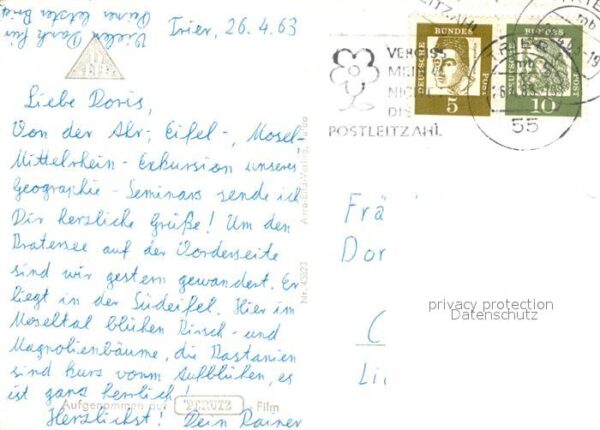 Vielen Dank für
Deinen letzten Brief
Trier, 26.4.63
Liebe Doris,
Von der Ahr-, Eifel-, Mosel-
Mittelrhein-Exkursion unseres
Geographie-Seminars sende ich
Dir herzliche Grüße! Um den
auf der Vorderseite
sind wir gestern gewandert. Er
liegt in der Südeifel. Hier im
Moseltal blühen Kirsch- und
Magnolienbäume, die Kastanien
sind kurz vorm Aufblühen, es
ist ganz herrlich!
Aufgenommen auf PERUTZ Film
Herzlichst! Dein Rainer
Nr. 43523
POSTLEITZAHL
DEUTSCHE BUNDES POST
5
DEUTSCHE BUNDESPOST
10
VERGISS
MEIN
NICHT
DIE
POSTLEITZAHL
55
Frä
Dor
privacy protection
Datenschutz